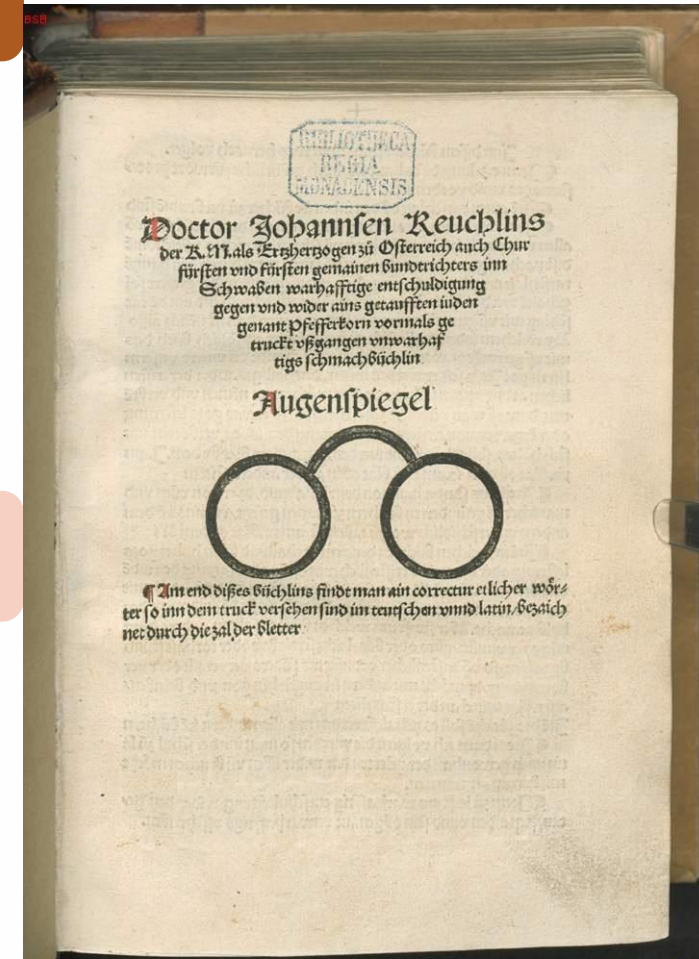 BSB
BIBLIOTHECA
REGIA
MONACENSIS
Doctor Johannsen Reuchlins
der K.M. als Ertzhertzogen zů Osterreich auch Chur
fürsten vnd fürsten gemainen bundtrichters inn
Schwaben warhafftige entschuldigung
gegen vnd wider ains getaufften iuden
genant Pfefferkorn vormals ge
truckt vßgangen vnwarhaf
tigs schmachbüchlin
Augenspiegel
¶ Am end dißes büchlins findt man ain correctur etlicher wör⸗
ter so inn dem truck versehen sind im teutschen vnnd latin/bezaich
net durch die zal der bletter